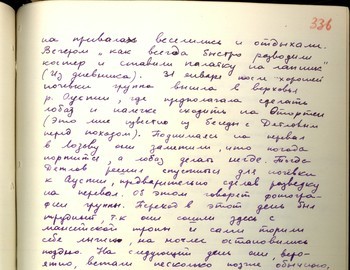 336
на привалах веселились и отдыхали.
Вечером „как всегда быстро разводим
костер и ставили палатку на лапник"
(Из дневника). 31 января после хорошей
ночёвки группа вышла в верховья
р. Ауспии, где предполагала сделать
лобаз и налегке сходить на Отортен
(Это мне известно из беседы с Дятловым
перед походом). Поднимаясь на перевал
в Лозьву они заметили, что погода
портится, а лобаз делать негде. Тогда
Дятлов решил спуститься для ночёвки
к Ауспии, предварительно сделав разведку
на перевал, об этом говорят фотогра-
фии группы. Переход в этот день был
труднее, т.к они сошли здесь с
мансийской тропы и сами торили
себе лыжню, на ночлег остановились
поздно. На следующий день они, веро-
ятно, встали несколько позже обычного,